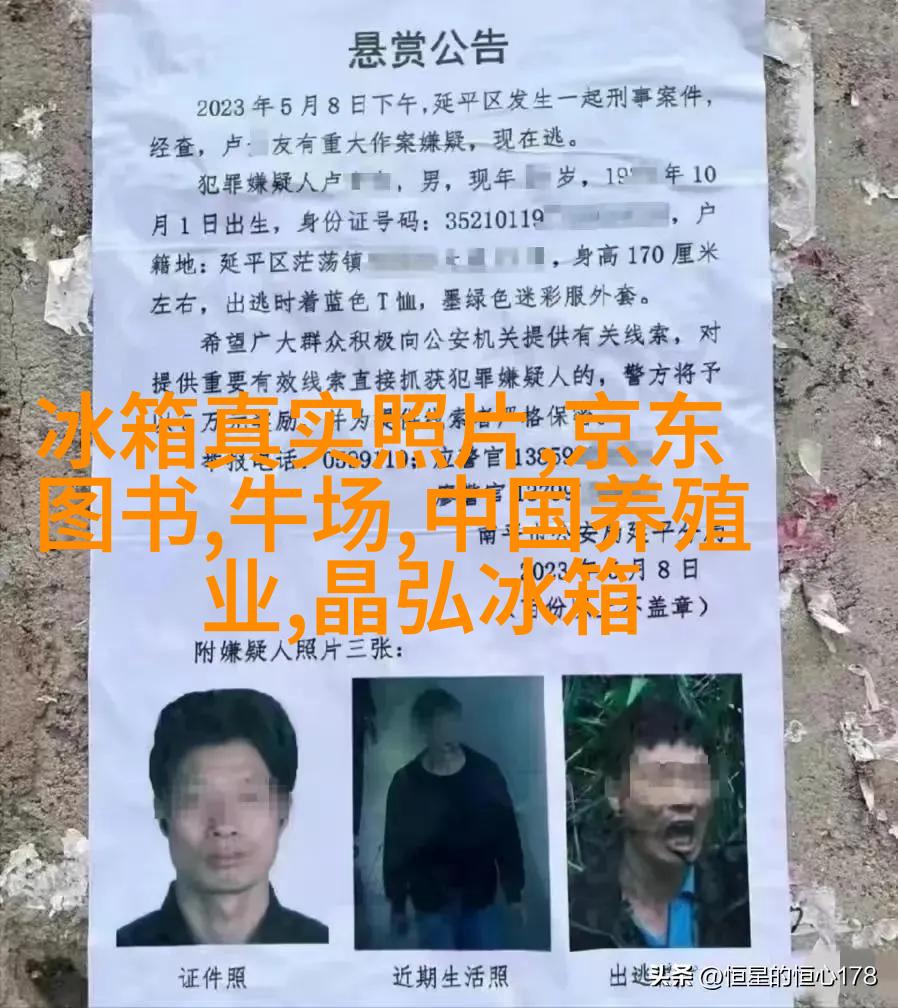 悬赏公告
2023年5月8日下午，延平区发生一起刑事案件，
经查，卢 友有重大作案嫌疑，现在逃。
犯罪嫌疑人卢 ，男，现年 岁，19 年10
月1日出生，身份证号码：35210119 ，户
籍地：延平区茫荡镇 ，身高170厘米
左右，出逃时着蓝色T恤，墨绿色迷彩服外套。
希望广大群众积极向公安机关提供有关线索，对
提供重要有效线索直接抓获犯罪嫌疑人的，警方将予
冰箱真实照片,京东
图书,牛场,中国养殖
业,晶弘冰箱
万 励 并为 者严格保
举报电话：
月8日
盖章）
附嫌疑人照片三张：
证件照
近期生活照
出逃
头条 @恒星的恒心178